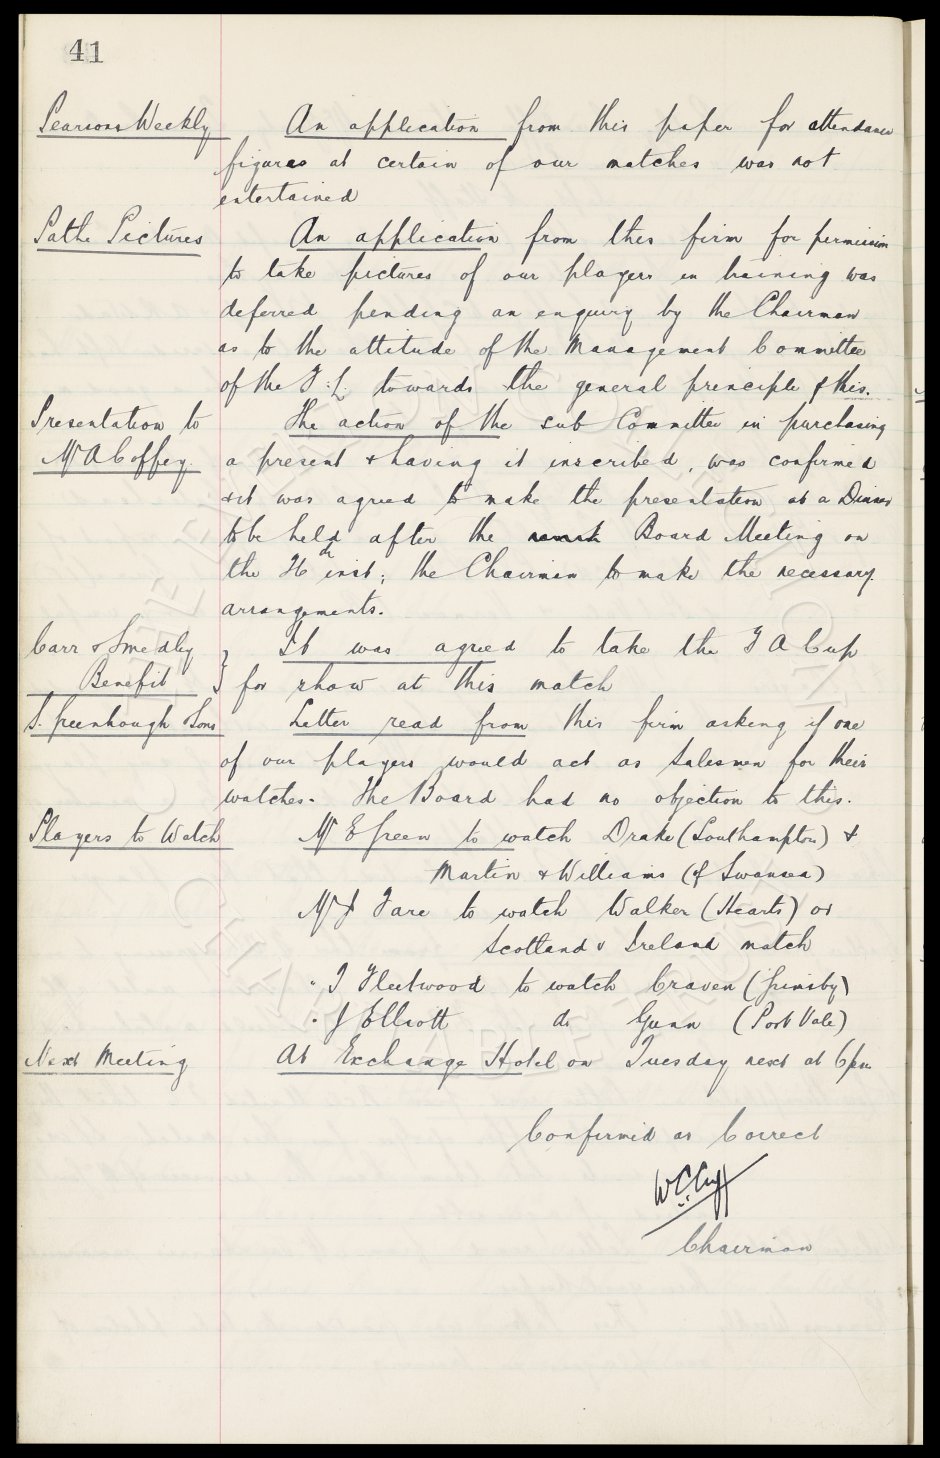 41
Pearsons Weekly An application from this paper for attendance
figures at certain of our matches was not
entertained
Pathe Pictures An application from this firm for permission
to take pictures of our players in training was
deferred pending an enquiry by the Chairman
as to the attitude of the Management Committee
of the F.L. towards the general principle of this.
Presentation to The action of the sub Committee in purchasing
Mr A Coffey a present & having it inscribed, was confirmed
& it was agreed to make the presentation at a Dinner
to be held after the Board Meeting on
the inst; the Chairman to make the necessary
arrangements.
Carr & Smedley } It was agreed to take the F A Cup
Benefit } for show at this match
S. Greenhough & Sons Letter read from this firm asking if one
of our players would act as Salesmen for their
watches. The Board had no objection to this.
Players to Watch Mr E Green to watch Drake (Southampton) &
Martin & Williams (of Swansea)
Mr J Fare to watch Walker (Hearts) or
Scotland v Ireland match
" T Fleetwood to watch Craven (Grimsby)
" J Elliott do Gunn (Port Vale)
Next Meeting At Exchange Hotel on Tuesday next at 6 pm
Confirmed as Correct
W C Cuff
Chairman